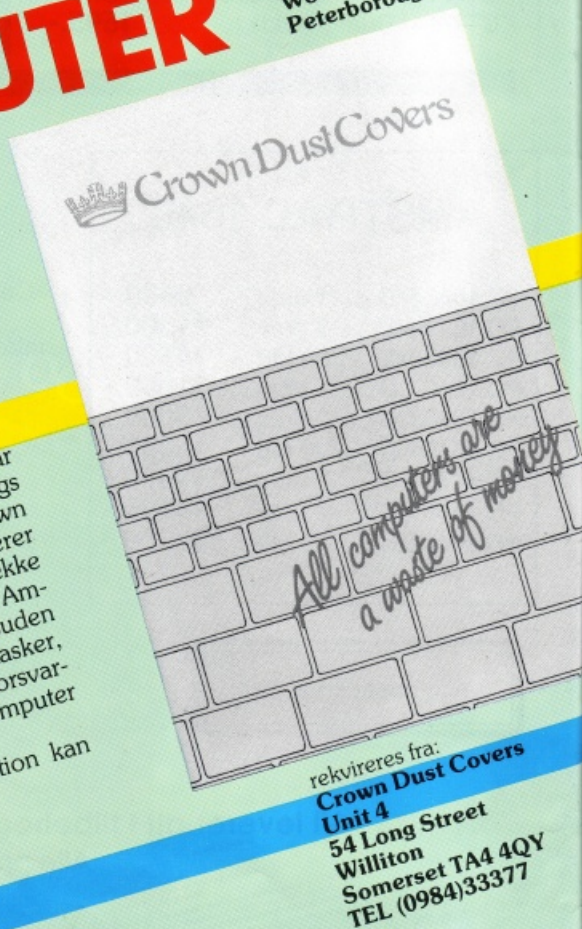 UTER
Peterboroug
Crown Dust Covers
All computers are
a waste of money
ar
gs
wn
erer
ekke
Am-
uden
asker,
orsvar-
mputer
tion kan
rekvireres fra:
Crown Dust Covers
Unit 4
54 Long Street
Williton
Somerset TA4 4QY
TEL (0984)33377